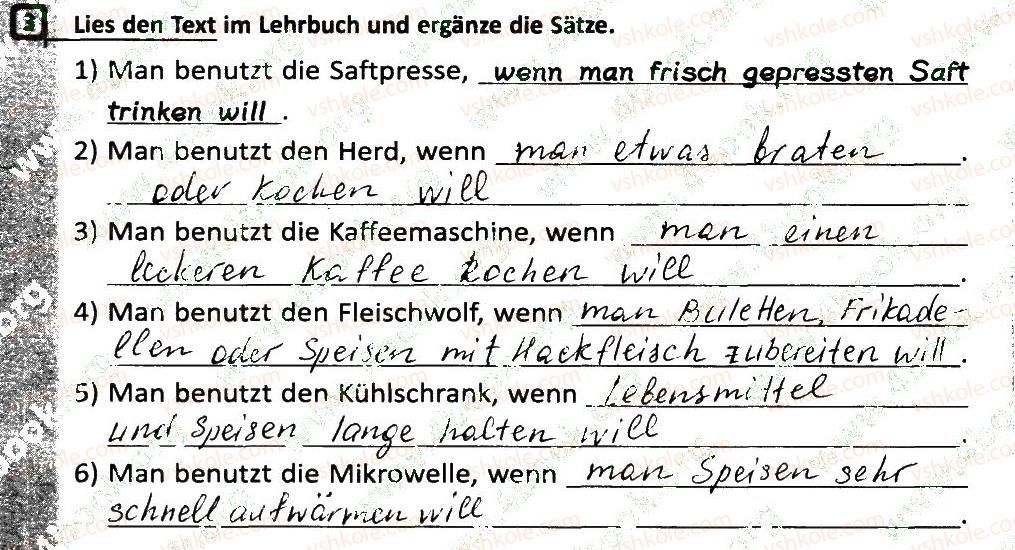 3 Lies den Text im Lehrbuch und ergänze die Sätze.
1) Man benutzt die Saftpresse, wenn man frisch gepressten Saft
trinken will.
2) Man benutzt den Herd, wenn man etwas braten
oder kochen will.
3) Man benutzt die Kaffeemaschine, wenn man einen
leckeren Kaffee kochen will.
4) Man benutzt den Fleischwolf, wenn man Buletten, Frikade-
llen oder Speisen mit Hackfleisch zubereiten will.
5) Man benutzt den Kühlschrank, wenn Lebensmittel
und Speisen lange halten will.
6) Man benutzt die Mikrowelle, wenn man Speisen sehr
schnell aufwärmen will.
vshkole.com